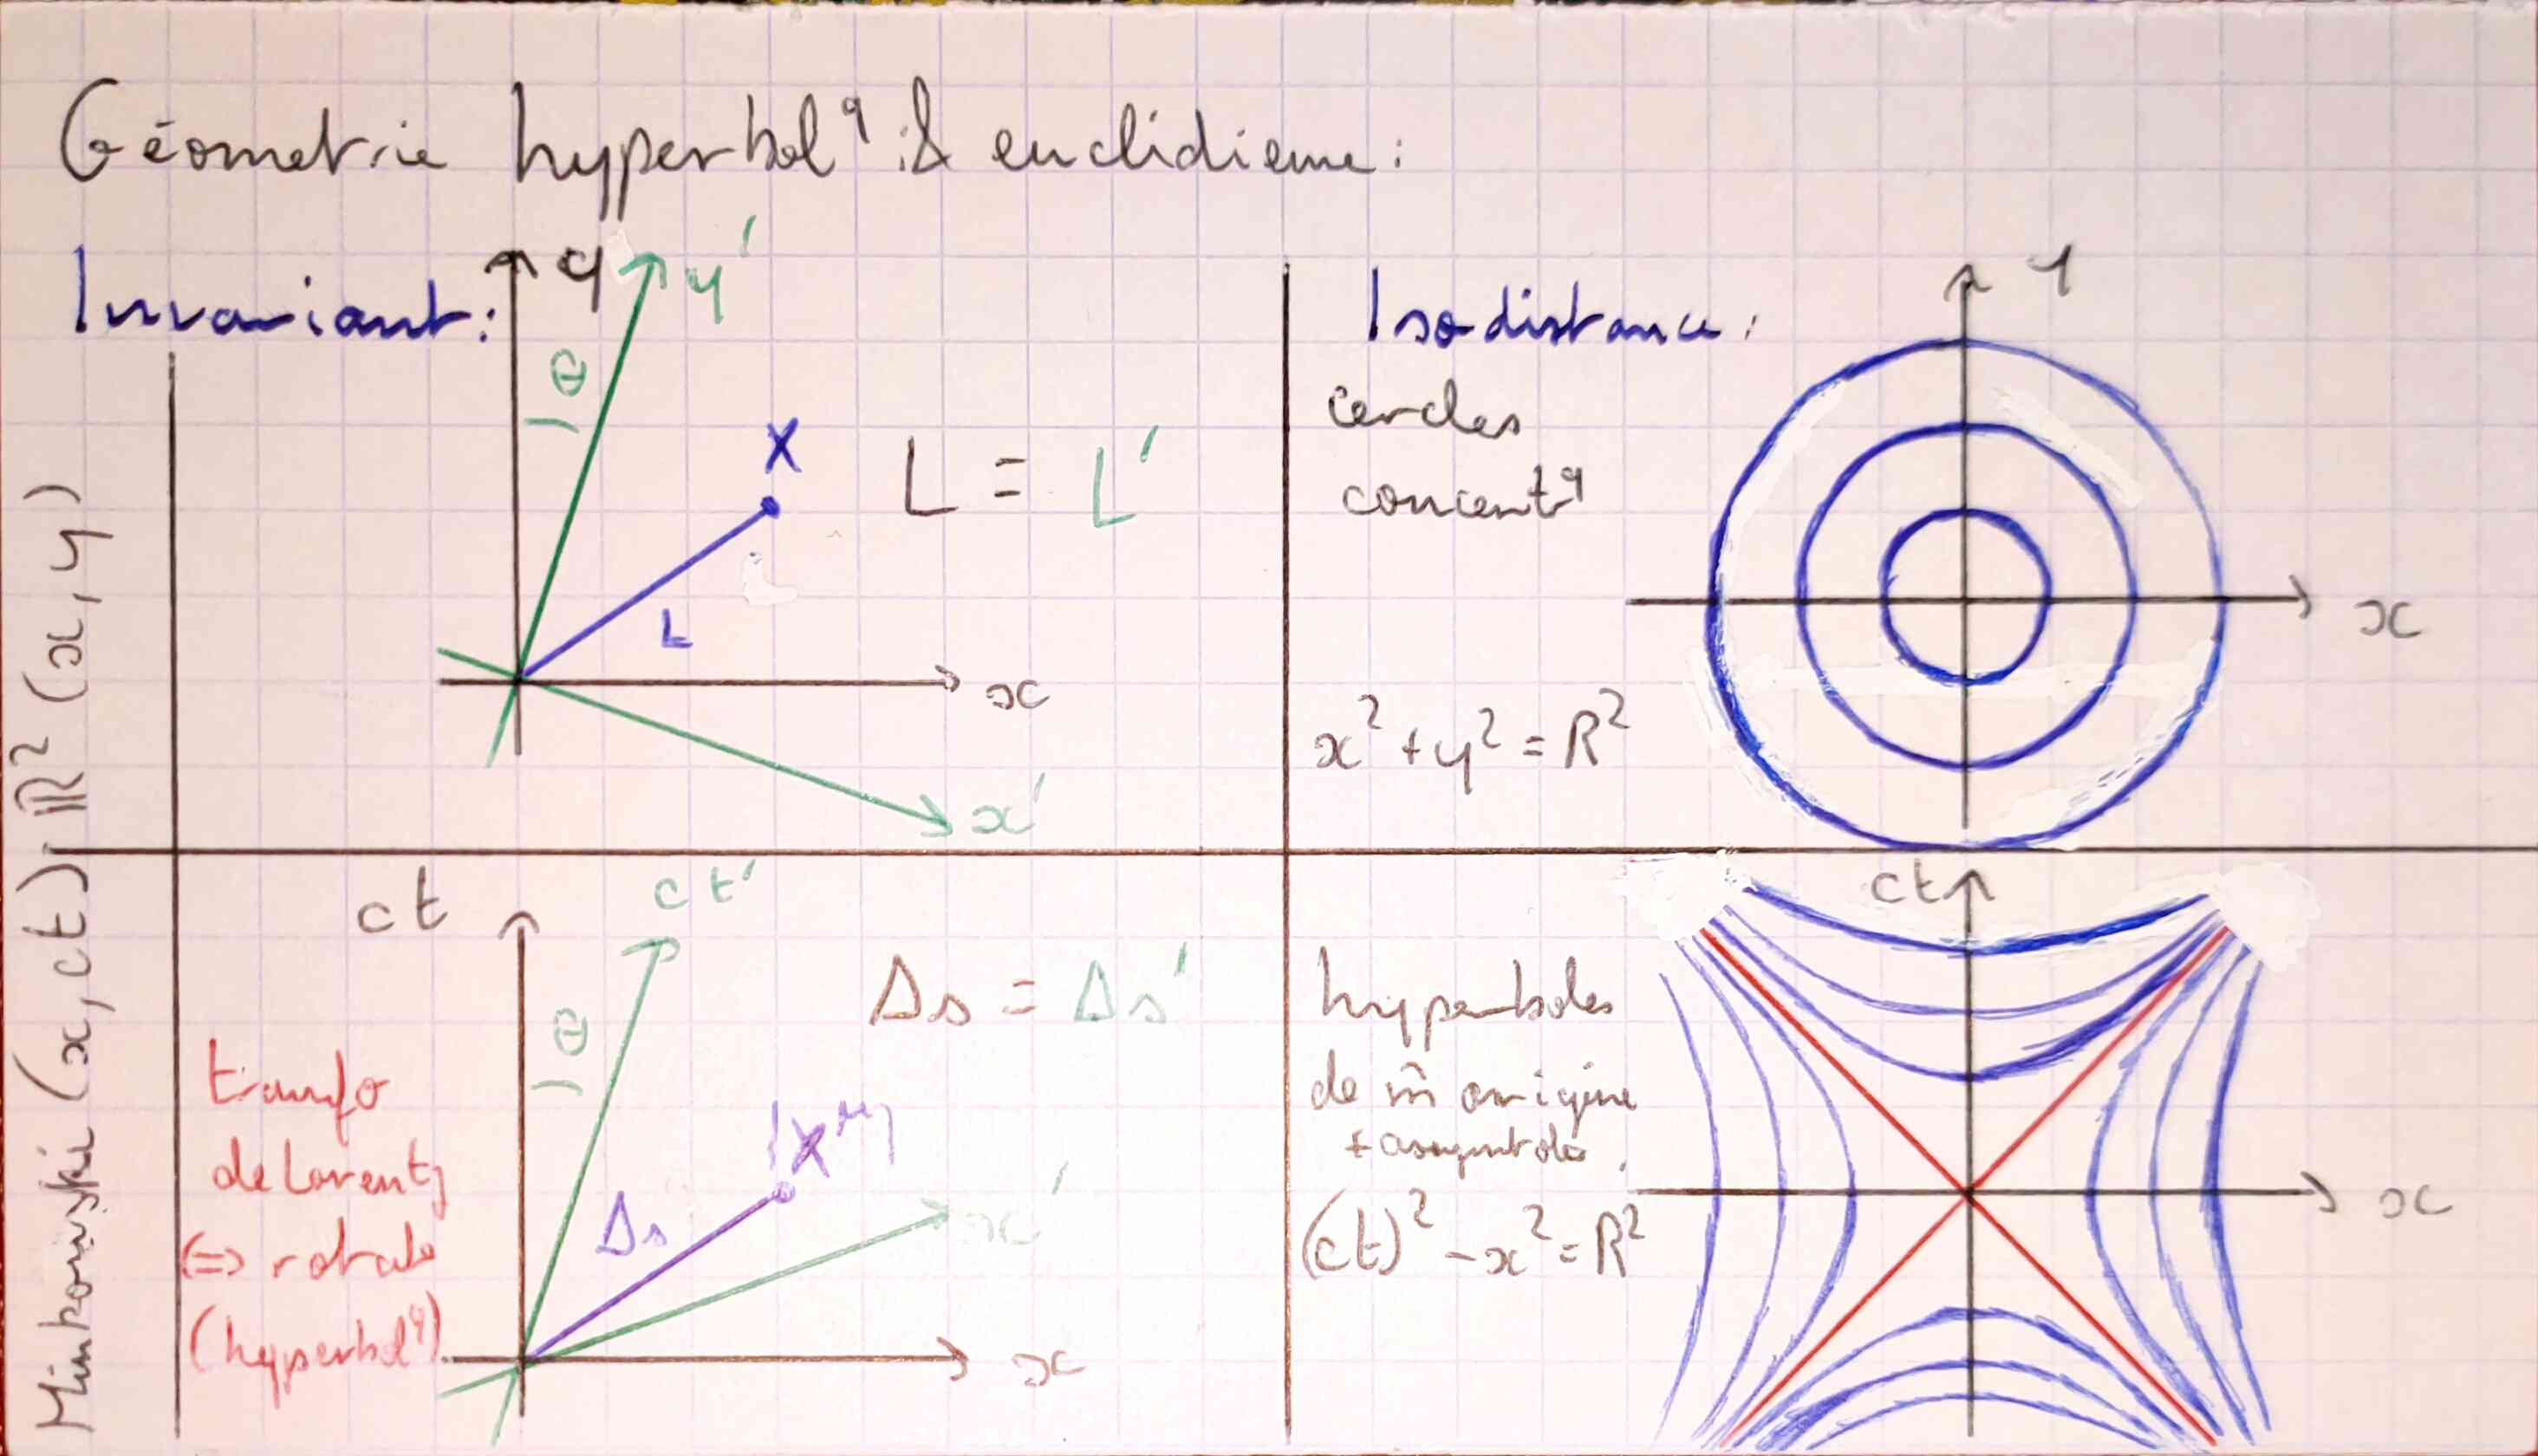 Géometrie hyperbol^q & euclidienne:
Invariant:
y
y'
θ
X
L = L'
L
x
x'
Isodistance:
cercles
concentr^q
x² + y² = R²
y
x
ℝ² (x, y)
Minkowski (x, ct)
ct
ct'
θ
Δs = Δs'
Δs
x'
x
transfo
de Lorentz
⇔ rotat°
(hyperbol^q)
hyperboles
de m̂ origine
+ asymptotes
(ct)² - x² = R²
ct
x